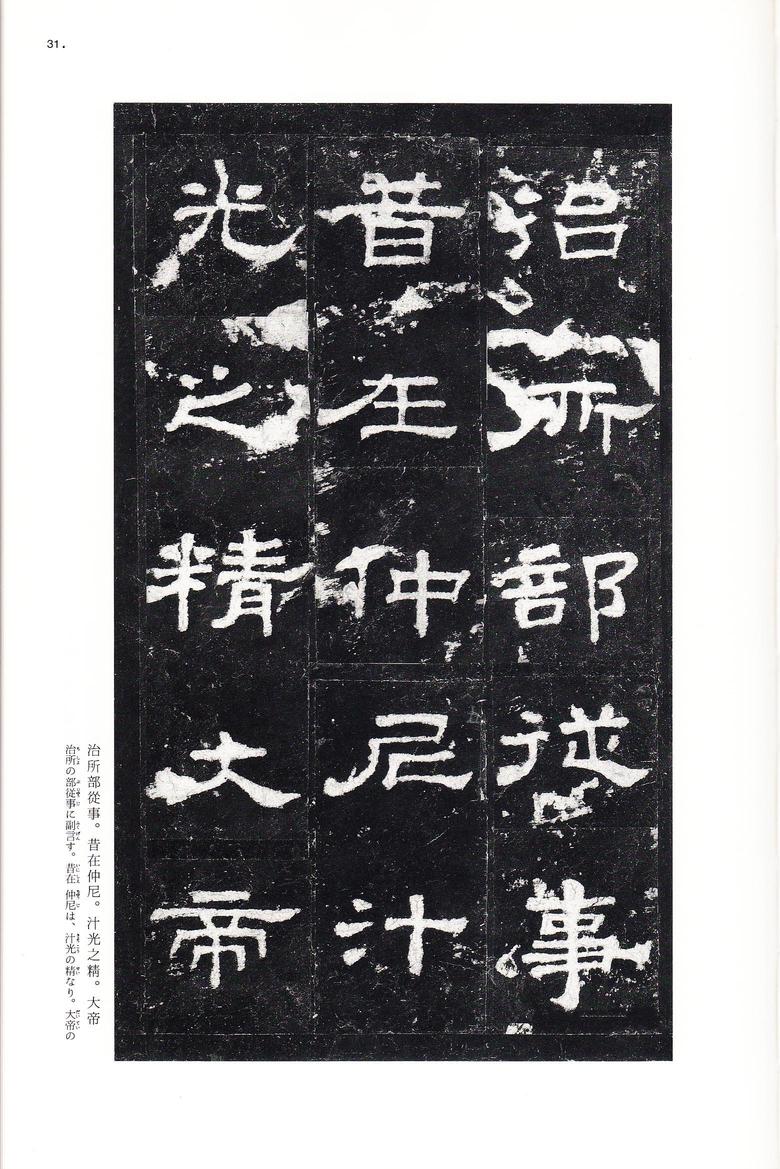 31.
治所部從事
昔在仲尼汁
光之精大帝
治所部從事。昔在仲尼。汁光之精。大帝
治所の部従事に副言す。昔在 仲尼は、汁光の精なり。大帝の